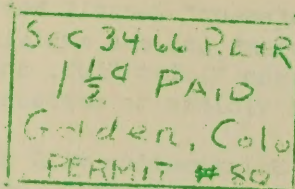 Sec 34.66 P.L+R
1 ½¢ PAID
Golden, Colo
PERMIT #80